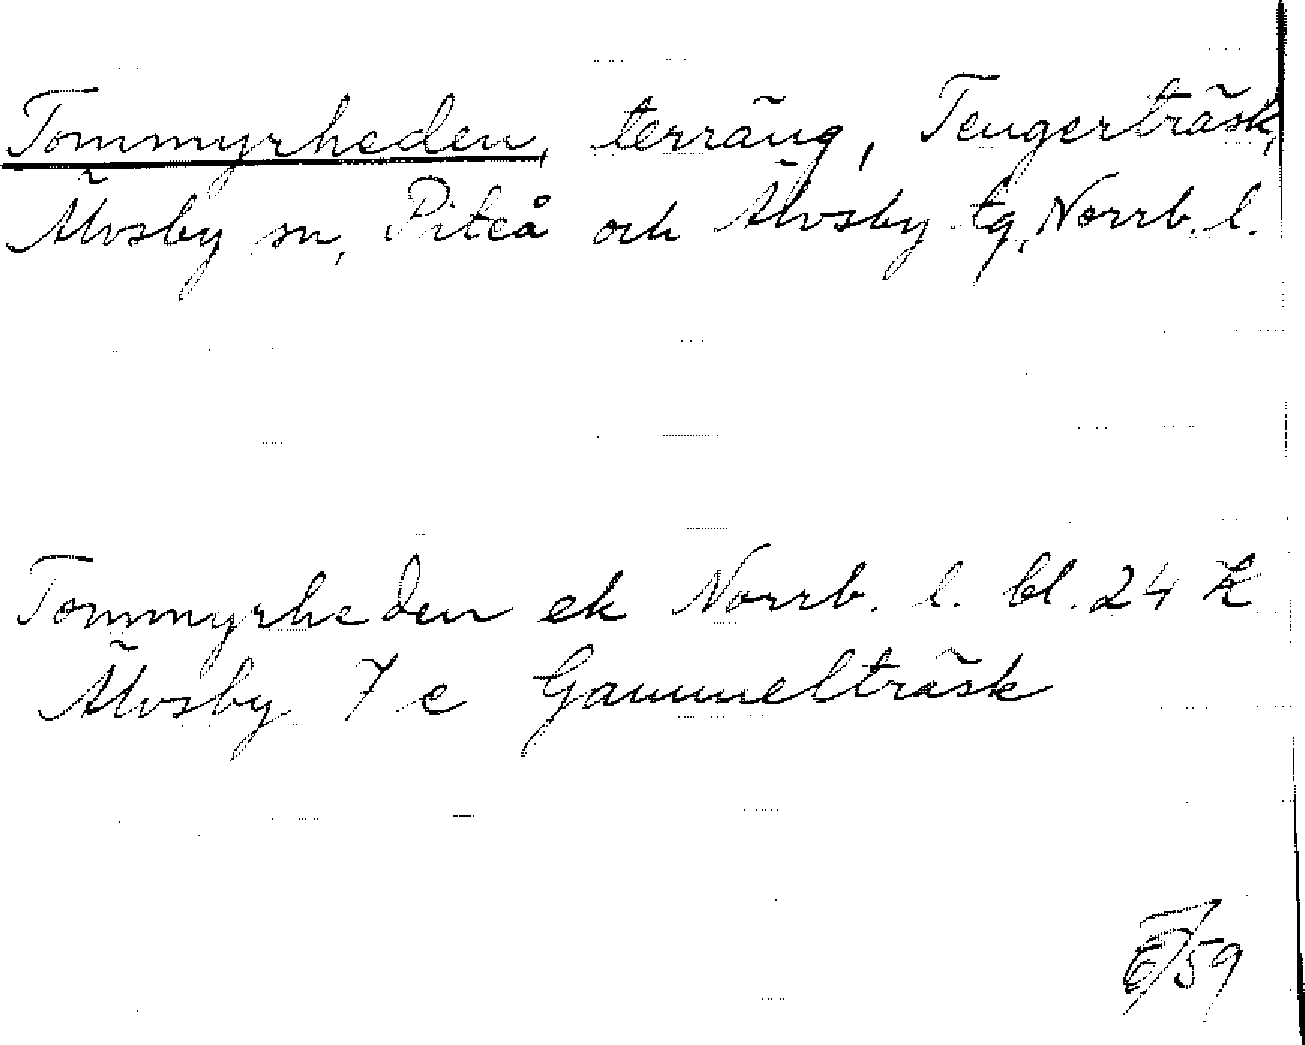 Tommyrheden, terräng, Teugerträsk,
Älvsby sn, Piteå och Älvsby tg, Norrb. l.
Tommyrheden ek Norrb. l. bl. 24
Älvsby 7 c Gammelträsk
59